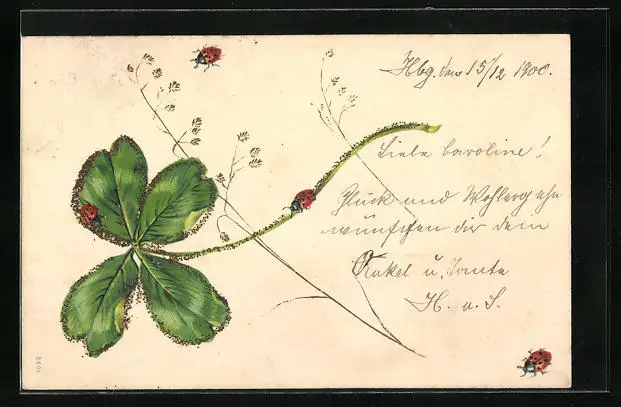 Hbg. den 15/12 1900.
Liebe Caroline!
Glück und Wohlergehn
wünschen dir dein
Onkel u. Tante
H. u. S.
1692